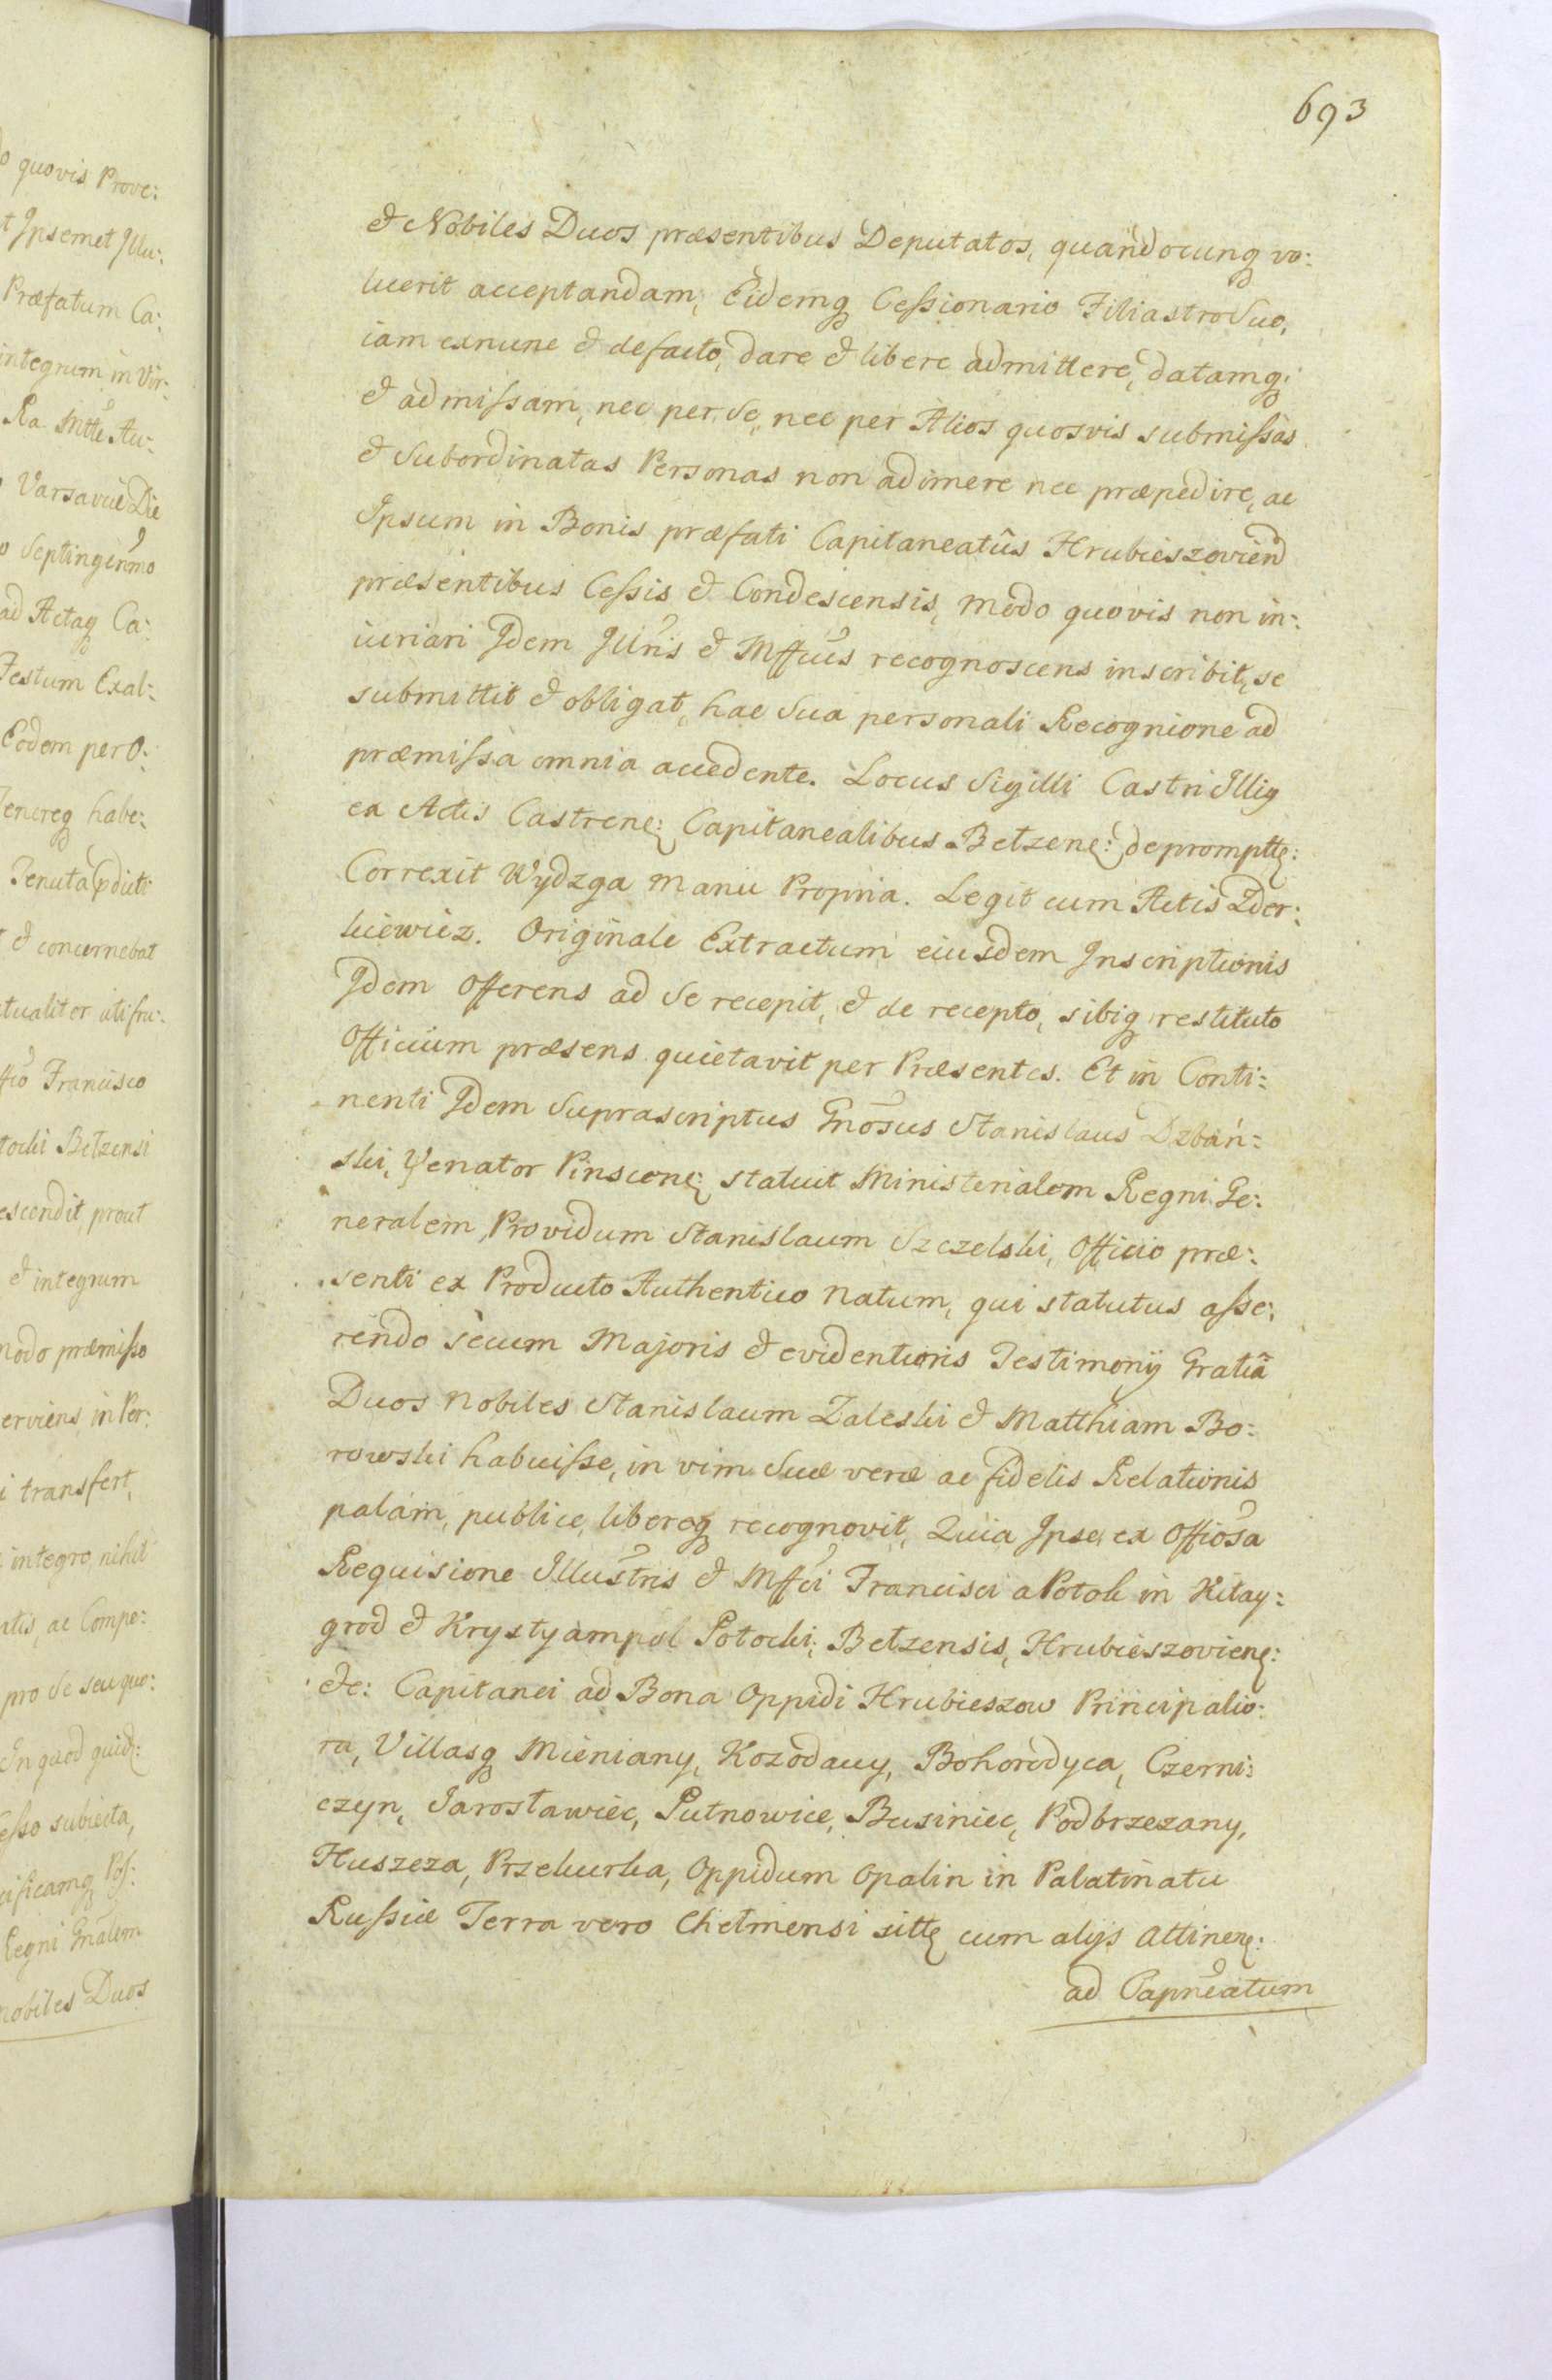 693
& Nobiles Duos præsentibus Deputatos, quandocunq vo:
luerit acceptandam, Eidemq Cessionario Filiastro Suo,
iam exnunc & defacto, dare & libere admittere, datamq;
& admissam, nec per Se, nec per Alios quosvis submissas
& Subordinatas Personas non adimere nec præpedire, ac
Ipsum in Bonis præfati Capitaneatûs Hrubieszovien
præsentibus Cessis & Condescensis, modo quovis non in:
iuriari Idem Illris & Mffcus recognoscens inscribit, se
submittit & obligat, hac Sua personali Recognione ad
præmissa omnia accedente. Locus Sigilli Castri Illig
ex Actis Castrene: Capitanealibus Betzene: depromptt:
Correxit Wydzga Manu Propria. Legit cum Actis Zder:
kiewicz. Originale Extractum eiusdem Inscriptionis
Idem Offerens ad Se recepit, & de recepto, sibiq restituto
Officium præsens quietavit per Præsentes. Et in Conti:
nenti Idem Suprascriptus Gnosus Stanislaus Dzbań:
ski, Venator Pinscene: statuit Ministerialem Regni Ge:
neralem, Providum Stanislaum Szczelski, Officio præ:
senti ex Producto Authentico Natum, qui statutus asse:
rendo secum Majoris & evidentioris Testimonij Gratiâ
Duos Nobiles Stanislaum Zaleski & Matthiam Bo:
rowski habuisse, in vim Suæ veræ ac fidelis Relationis
palam, publice, libereq recognovit, Quia Ipse ex Offiosa
Requisione Illustris & Mffci Francisci a Potok in Kitay:
grod & Krystyampol Potocki, Betzensis, Hrubieszoviene:
&c: Capitanei ad Bona Oppidi Hrubieszow Principalio:
ra, Villasq Mieniany, Kozodawy, Bohorodyca, Czerni:
czyn, Jarostawiec, Putnowice, Businiec, Podbrzezany,
Huszcza, Przekurka, Oppidum Opalin in Palatinatu
Russiæ Terra vero Chetmensi sitt cum alijs Attinene:
ad Capneatum
o quovis Prove:
t Ipsemet Illu:
Præfatum Ca:
integrum in Vir:
Varsaviæ Die
o Septingenmo
ad Actaq Ca:
Festum Exal:
Eodem per O:
enereq habe:
& concernebat
ctualiter uti fru:
ffco Francisco
tocki Betzensi
escendit, prout
& integrum
modo præmisso
erviens in Per:
i transfert,
integro, nihil
atis, ac Compe:
pro Se seu quo:
In quod quid:
esso subiecta,
cificamq Pos:
Regni Gnalem
nobiles Duos